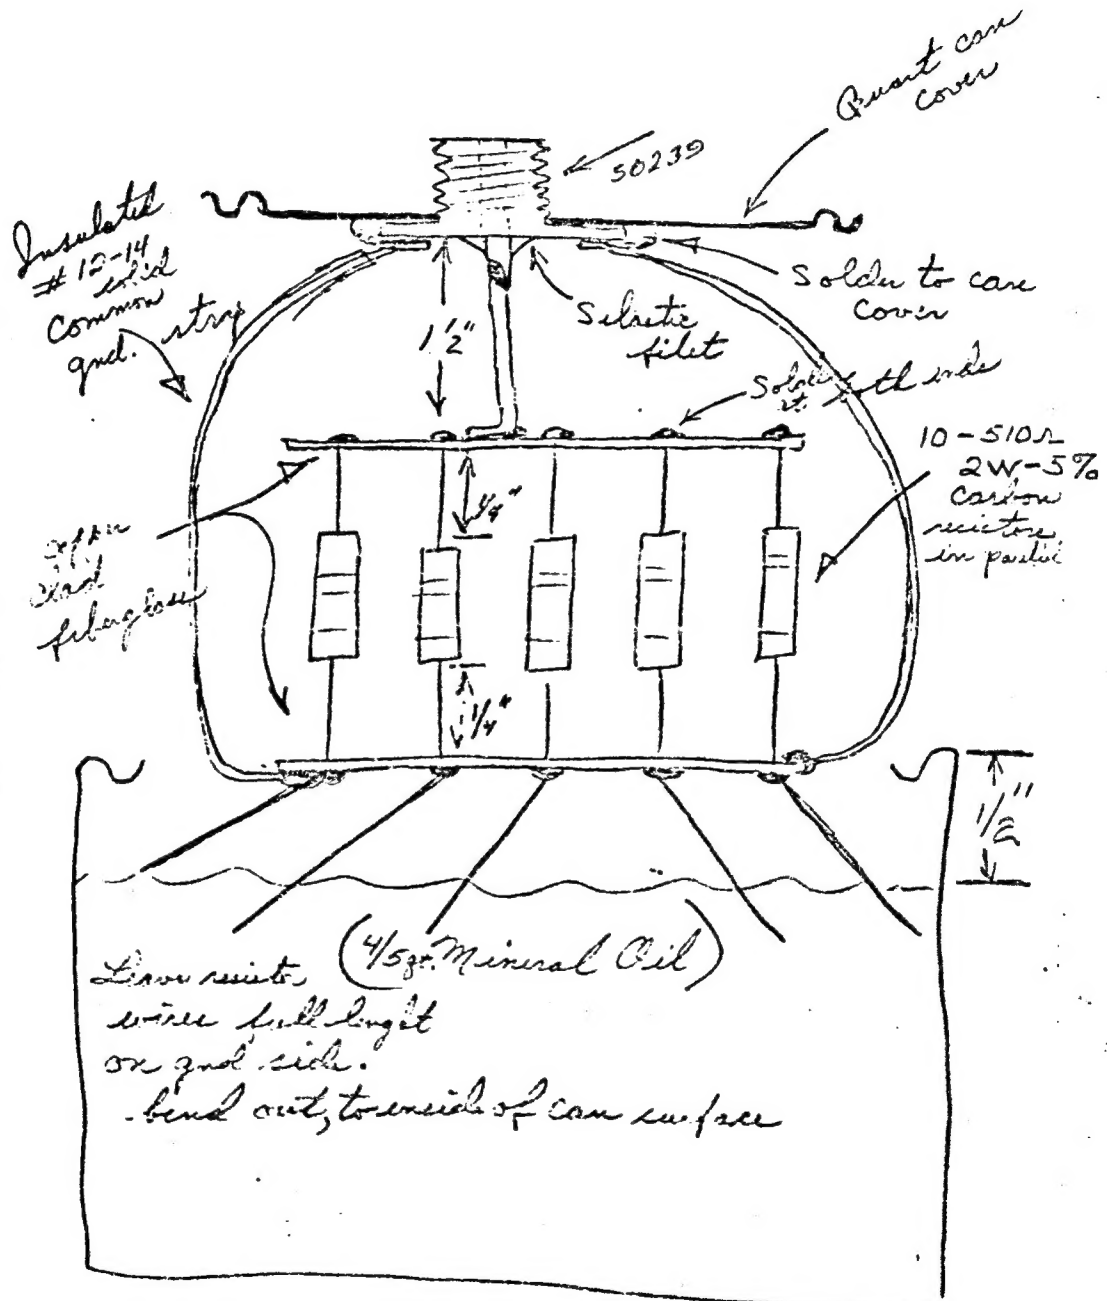 Quart can
cover
SO239
Insulated
#12-14
solid
common
gnd. strap
Solder to can
cover
Silastic
filet
1 1/2"
Solder
at both ends
10-510Ω
2W-5%
carbon
resistors
in
1/4"
copper
clad
fiberglass
1/4"
1/2"
(4/5 qt. Mineral Oil)
Leave resistor
wires full lenght
on gnd side.
bend out, to inside of can surface